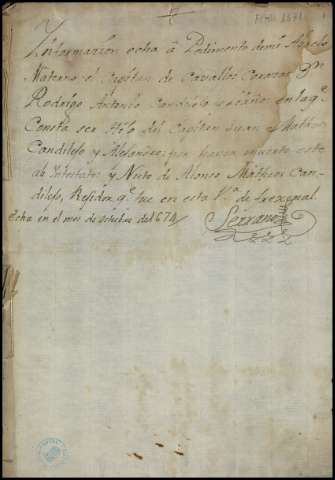 Ynformazion echa â Pedimento de mi Abuelo
Materno el Capitan de Cavallos Corazas Dn
Rodrigo Antonio Candilejo y
Consta ser Hijo del Capitan Juan Matheos
Candilejo y por haver muerto este
ab Intestato y Nieto de Alonso Matheos Can-
dilejo, Rexidor q.e fue en esta V.a de frexenal
echa en el mes de octubre del 1674
Serrano